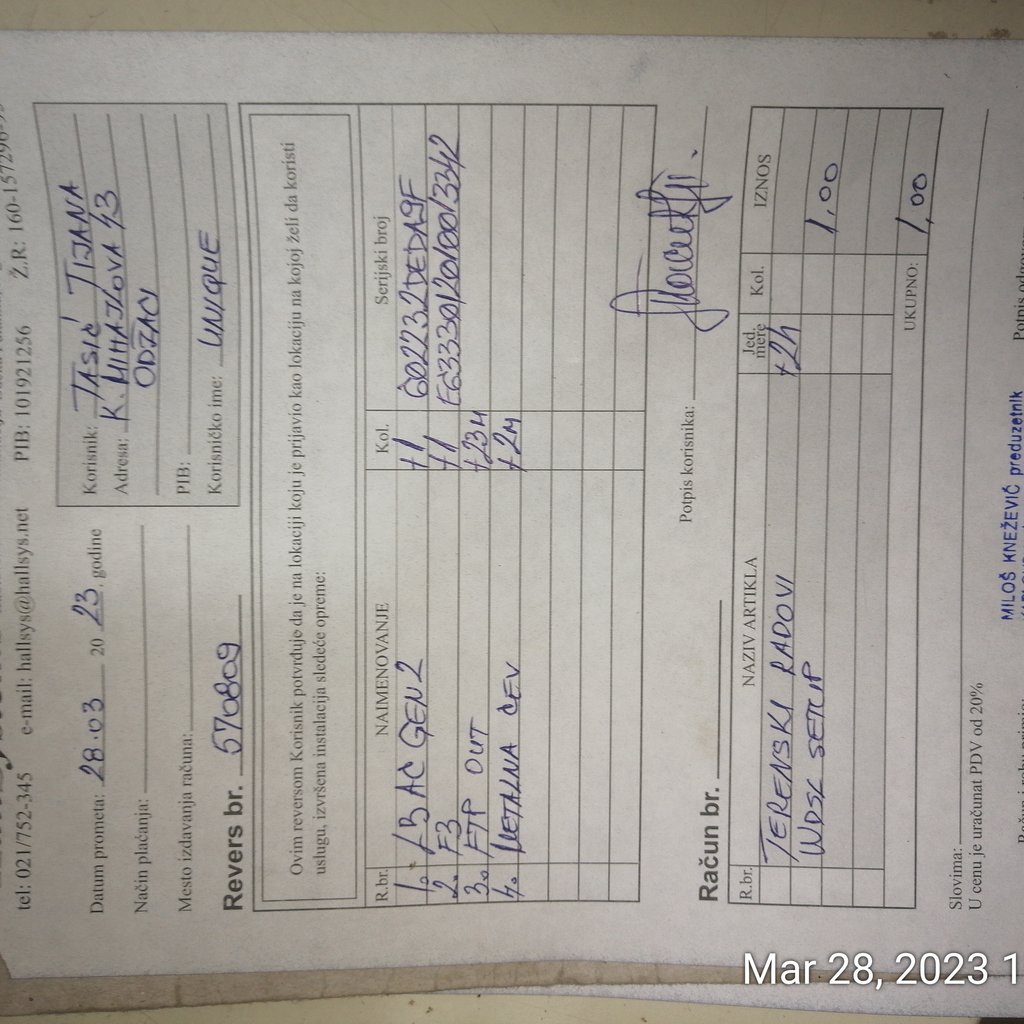 tel: 021/752-345 e-mail: hallsys@hallsys.net PIB: 101921256 Ž.R: 160-157296-
Datum prometa: 28.03 2023. godine
Način plaćanja:
Mesto izdavanja računa:
Korisnik: TASIĆ TIJANA
Adresa: K. MIHAJLOVA 43
ODŽACI
PIB:
Korisničko ime: UNIQUE
Revers br. 570809
Ovim reversom Korisnik potvrđuje da je na lokaciji koju je prijavio kao lokaciju na kojoj želi da koristi
uslugu, izvršena instalacija sledeće opreme:
R.br. NAIMENOVANJE Kol. Serijski broj
1. LB AC GEN2 +1 602232DEDA9F
2. F3 +1 E63330/20/100/3342
3. FTP OUT +23M
4. METALNA CEV +2M
Potpis korisnika:
Račun br.
R.br. NAZIV ARTIKLA Jed. mere Kol. IZNOS
TERENSKI RADOVI +2h
WDSL SETUP 1,00
UKUPNO: 1,00
Slovima:
U cenu je uračunat PDV od 20%
MILOŠ KNEŽEVIĆ preduzetnik
Mar 28, 2023 1